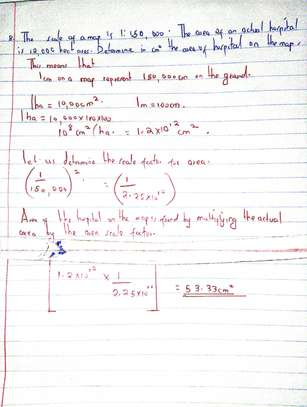 8. The scale of a map is 1:150,000. The area of an actual hospital
is 12,000 hectares. Determine in cm² the area of hospital on the map.
This means that
1cm on a map represent 150,000cm on the ground.
1ha = 10,000m². 1m = 100cm.
1ha = 10,000 x 100 x 100
10⁸ cm²/ha. = 1.2 x 10¹² cm².
Let us determine the scale factor for area.
(1/150,000)² = (1/2.25x10¹⁰)
Area of the hospital on the map is found by multiplying the actual
area by the area scale factor.
[1.2 x 10¹² x 1/2.25x10¹⁰] = 53.33cm²